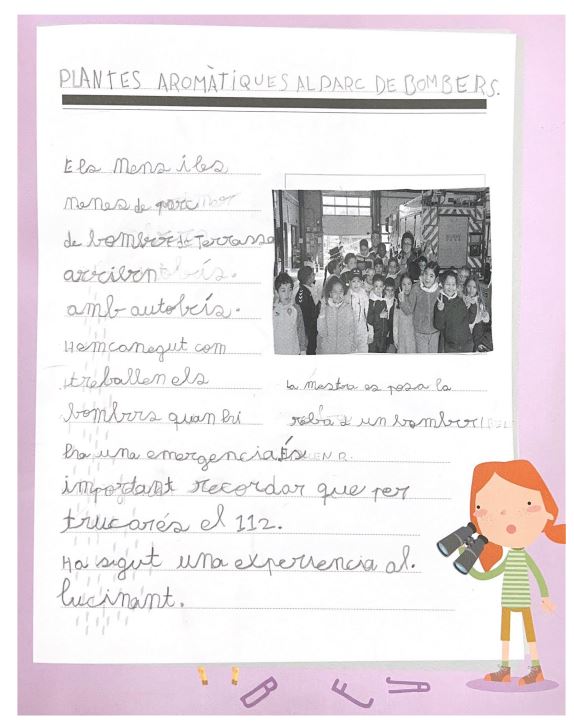 PLANTES AROMÀTIQUES AL PARC DE BOMBERS.
Els Nens i les
nenes de parc
de bombers de Terrassa
arriben
amb autobús.
Hem conegut com
treballen els
bombers quan hi
ha una emergencia És
important recordar que per
trucar és el 112.
Ha sigut una experiencia al.
lucinant.
La mestra es posa la
roba d un bomber